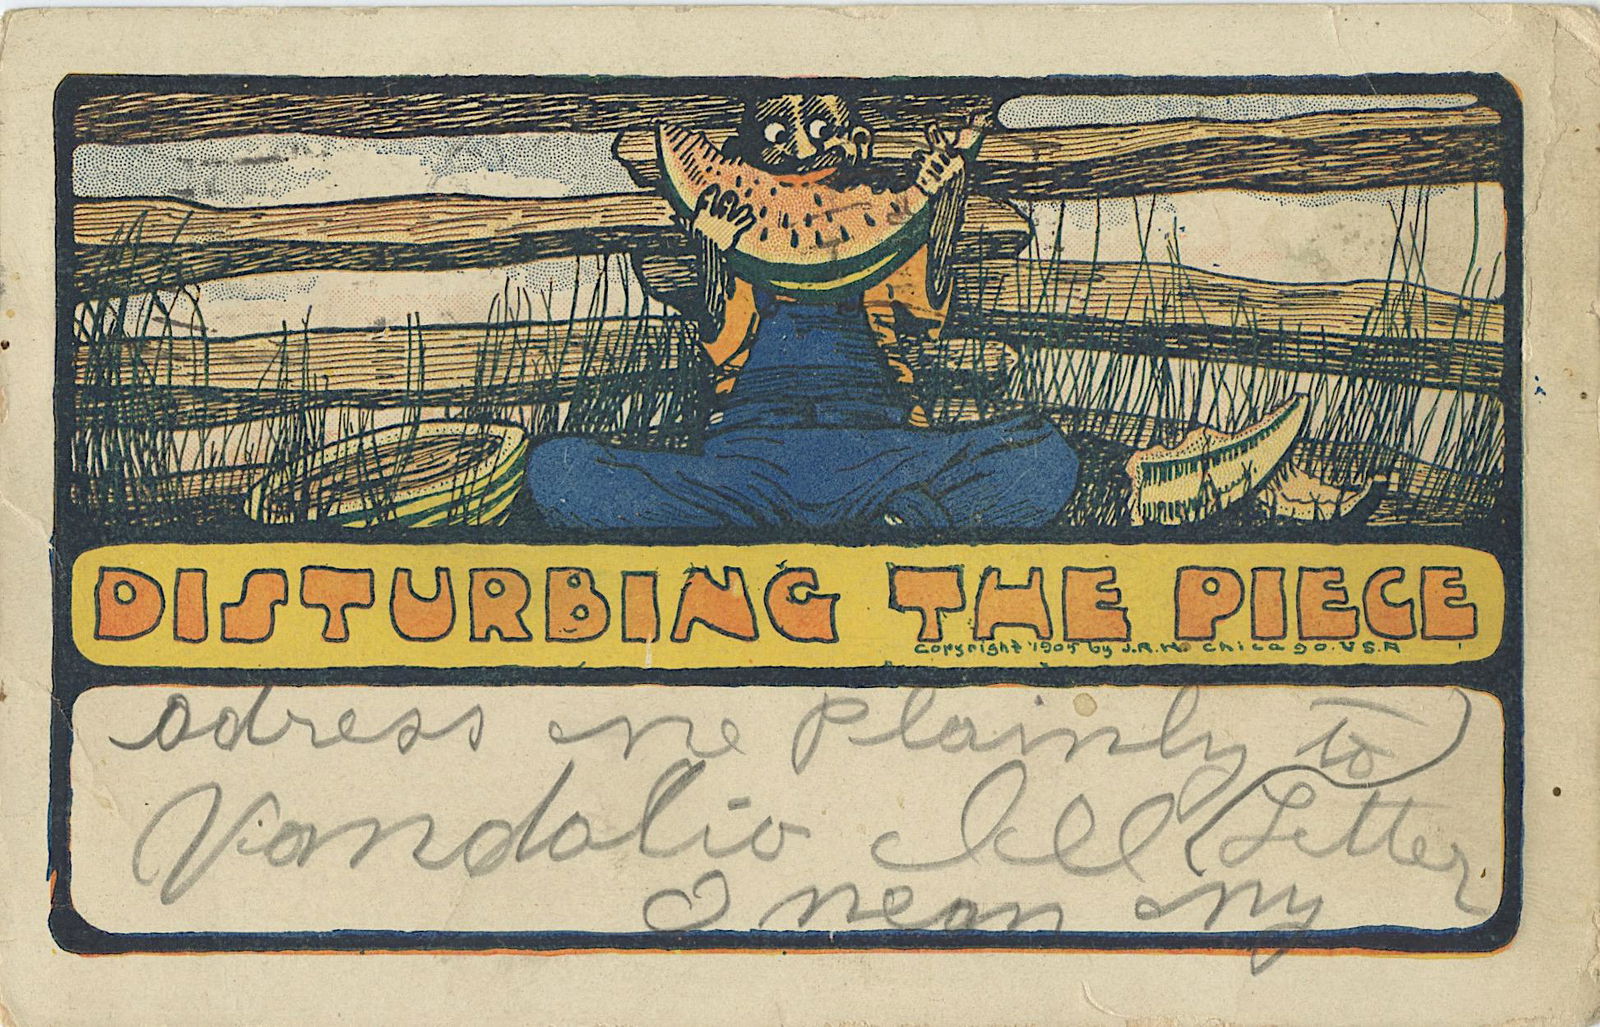 DISTURBING THE PIECE
Copyright 1905 by J.R.H. Chicago. U.S.A
adress me plainly to
Vandalia Ill (Letter
I mean my